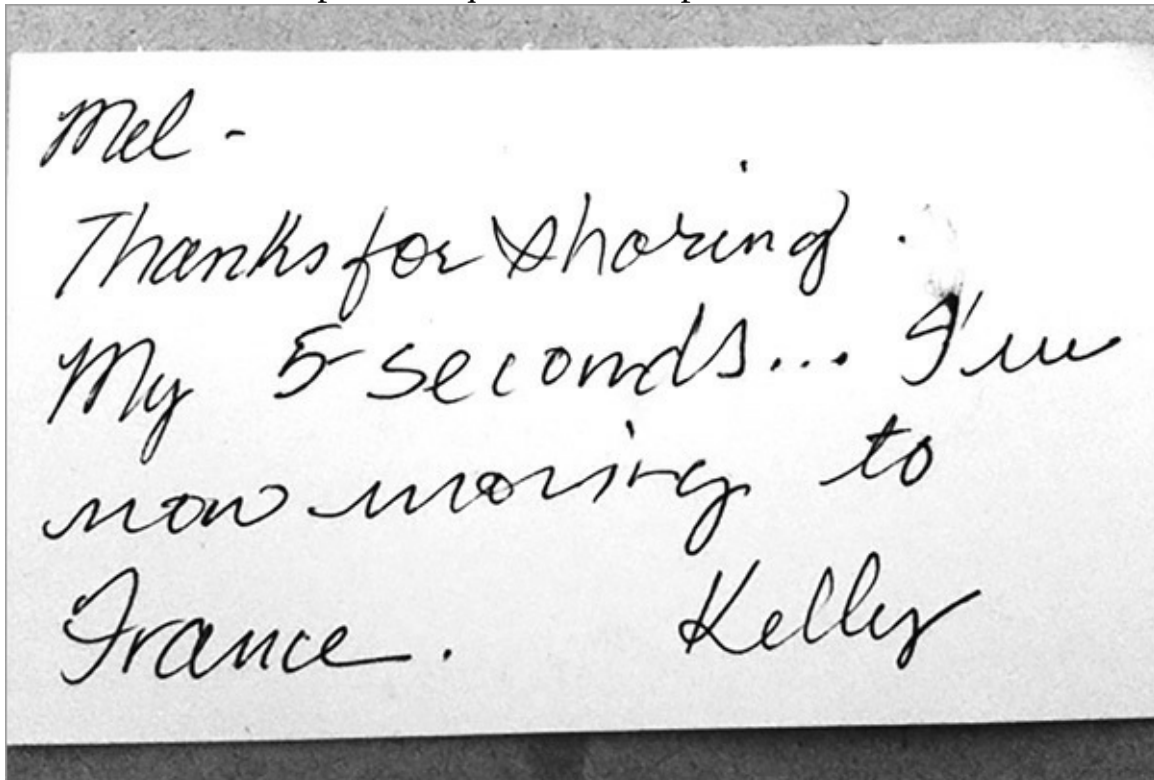 Mel -
Thanks for sharing.
My 5 seconds... I'm
now moving to
France. Kelly